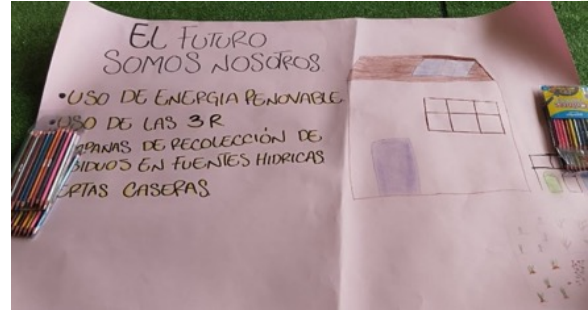 EL FUTURO
SOMOS NOSOTROS
• USO DE ENERGIA RENOVABLE
USO DE LAS 3 R
DE RECOLECCIÓN DE
EN FUENTES HIDRICAS
CASERAS